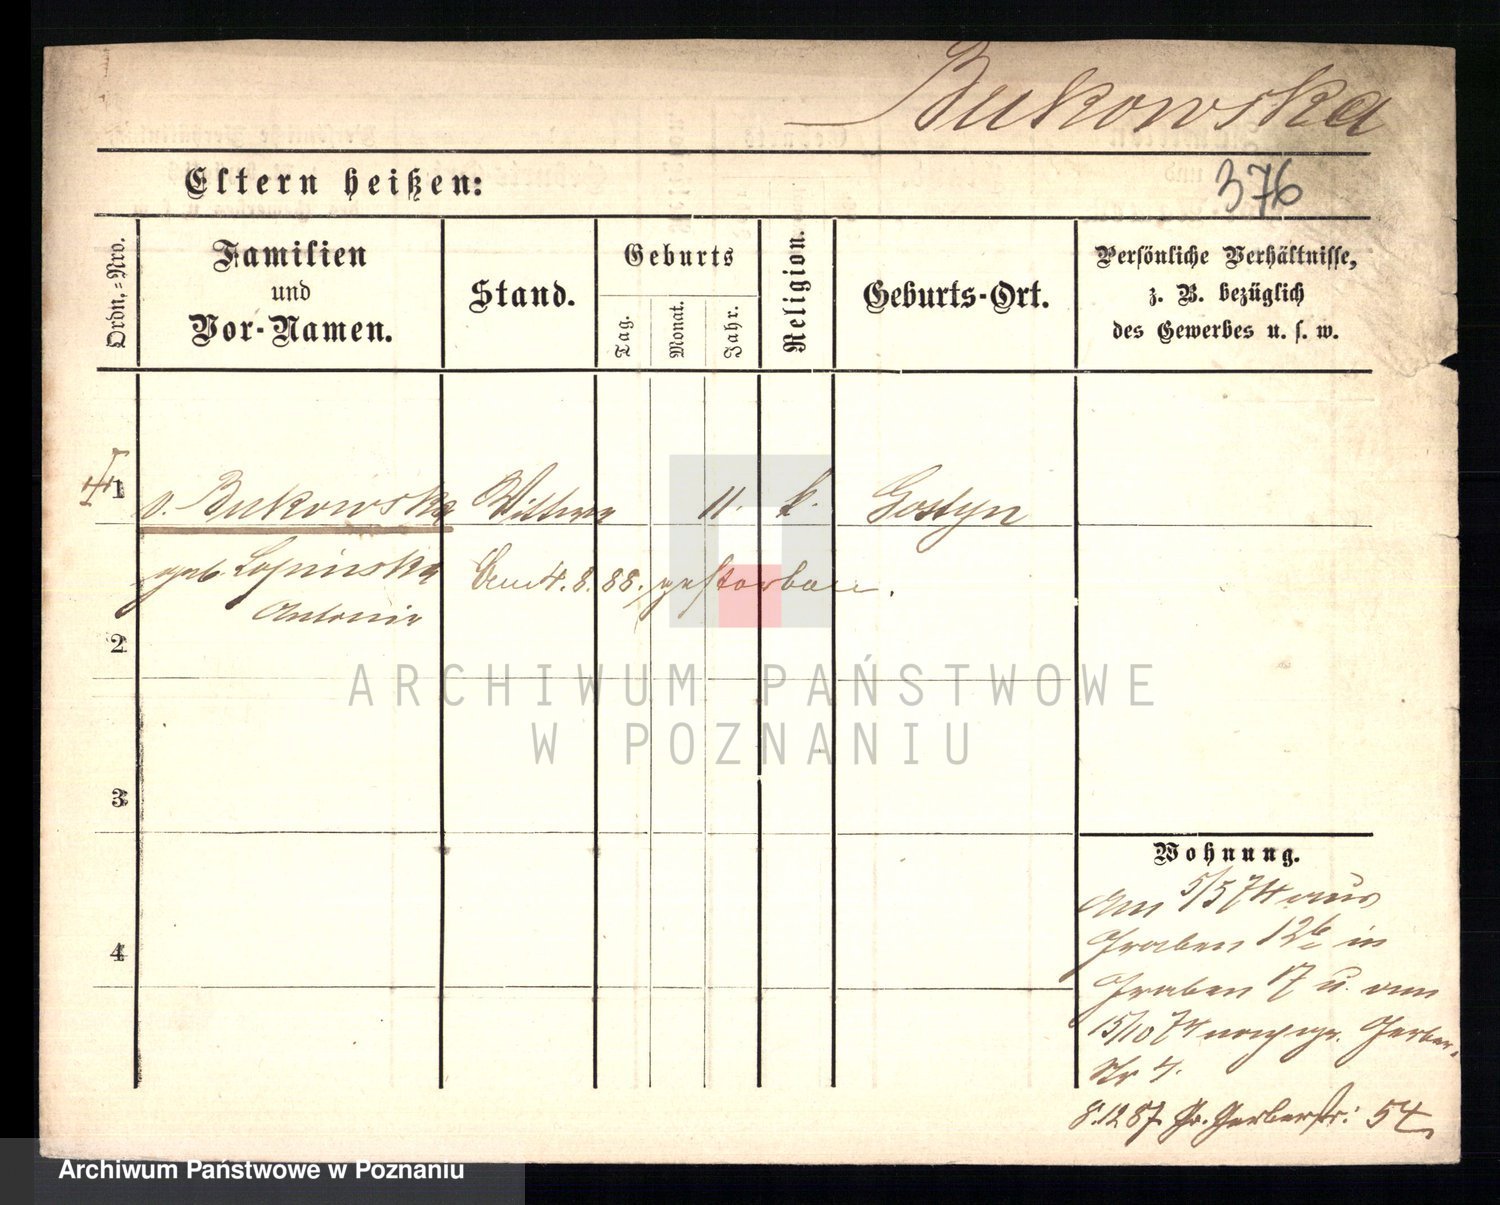 Bukowska
Eltern heißen:
376
Ordn.=Nro.
Familien
und
Vor-Namen.
Stand.
Geburts
Tag.
Monat.
Jahr.
Religion.
Geburts-Ort.
Persönliche Verhältnisse,
z. B. bezüglich
des Gewerbes u. s. w.
1
v. Bukowska
Wittwe
11.
k.
Gostyn
geb. Lopinska
Am 4. 8. 88. gestorben.
Antonie
2
3
4
Wohnung.
Am 5/5 74 aus
Graben 12b in
Graben 17 u. am
15/10 74 nach gr. Gerber-
Str 4.
8.12 87. Gr. Gerberstr: 54.
ARCHIWUM PAŃSTWOWE
W POZNANIU
Archiwum Państwowe w Poznaniu